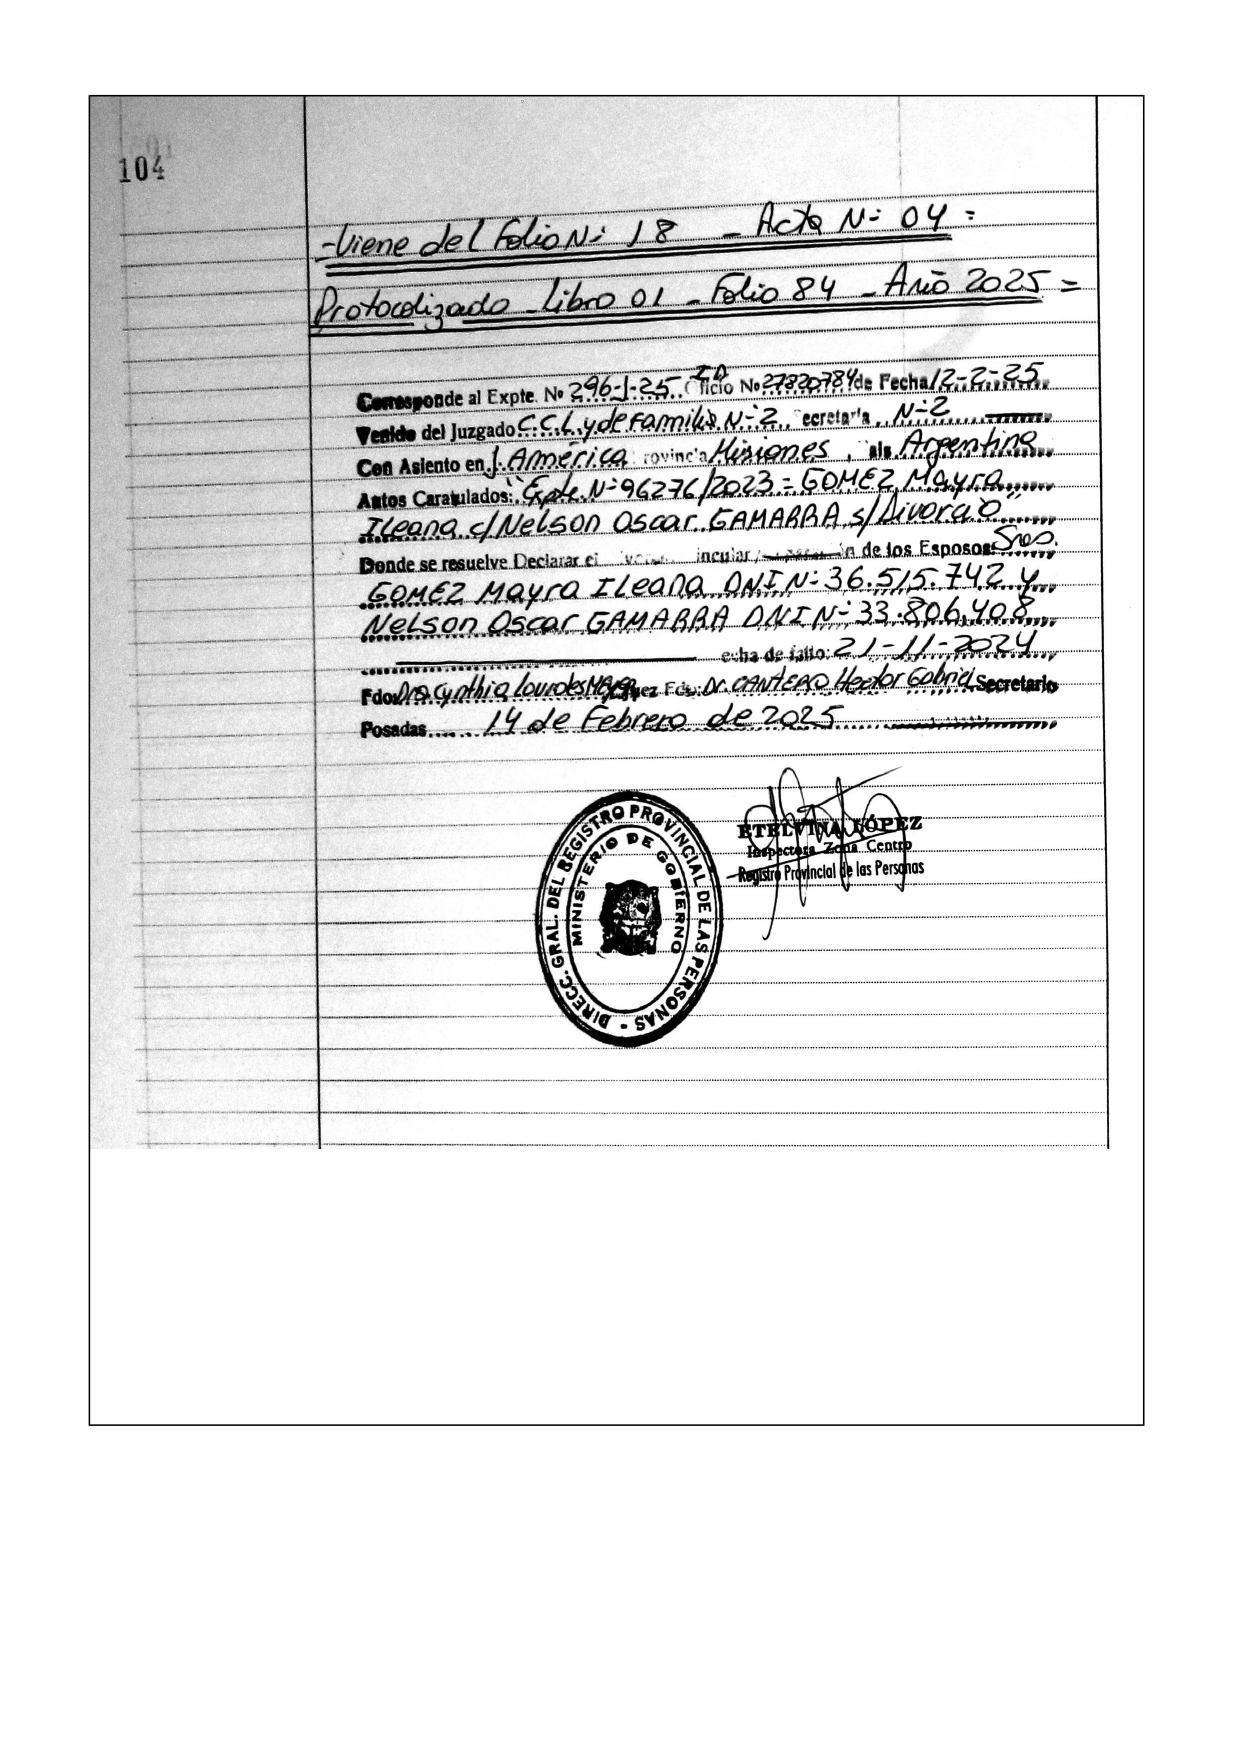 104
- Viene del Folio N: 18 - Acta N: 04 =
Protocolizado - Libro 01 - Folio 84 - Año 2025 =
Corresponde al Expte. No 296-J-25 I.D. Oficio No 27820784 de Fecha 12-2-25
Venido del Juzgado C.C.L. y de Familia N-2 Secretaría N-2
Con Asiento en J. América rovincia Misiones, aís Argentina
Autos Caratulados: "Expte. N: 96276/2023 = GOMEZ Mayra
Ileana c/ Nelson Oscar GAMARRA s/ Divorcio"
Donde se resuelve Declarar el incular de los Esposos: Sres.
GOMEZ Mayra Ileana DNI N: 36.515.742 y
Nelson Oscar GAMARRA DNI N: 33.806.408
echa de fallo: 21-11-2024
Fdo: Dra. Cynthia Lourdes Juez Fdo: Dr. CANTERO Hector Gabriel Secretario
Posadas 14 de Febrero de 2025
ETELVINA LÓPEZ
Inspectora Zona Centro
Registro Provincial de las Personas
DIRECC. GRAL. DEL REGISTRO PROVINCIAL DE LAS PERSONAS -
MINISTERIO DE GOBIERNO